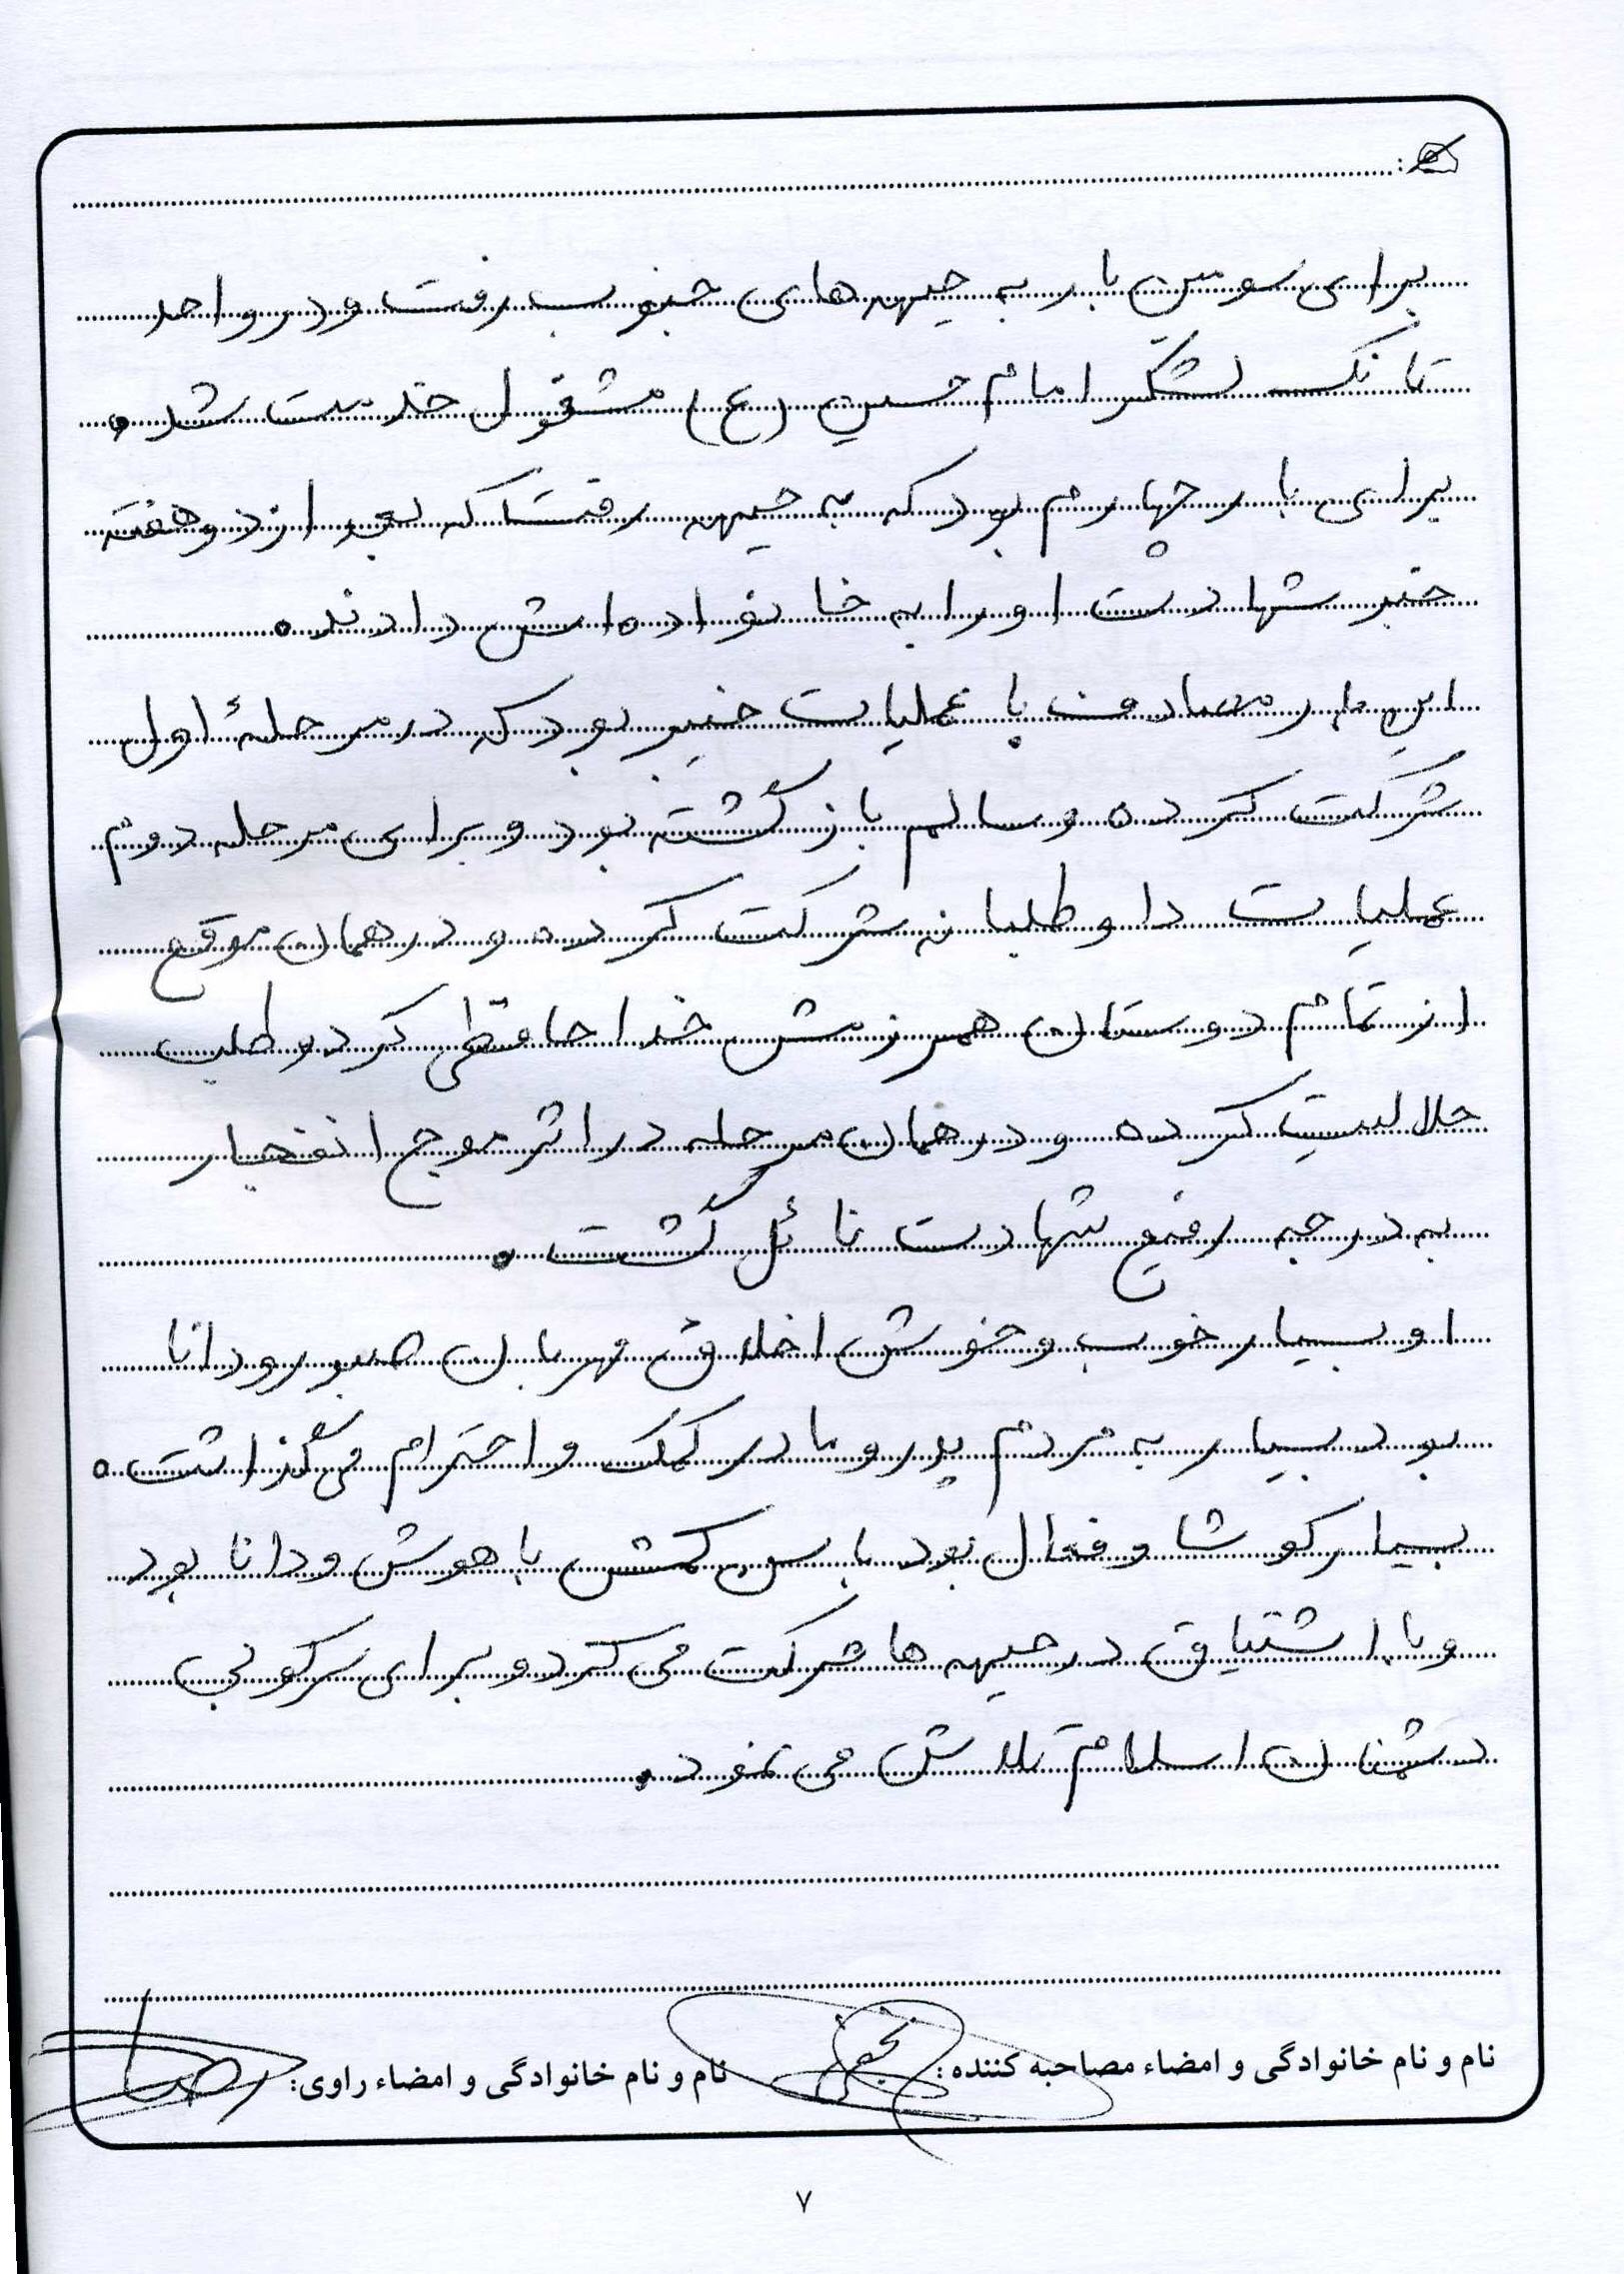 برای سومین بار به جبهه های جنوب رفت و در واحد
تانک لشگر امام حسین (ع) مشغول خدمت شد.
برای بار چهارم بود که به جبهه رفت که بعد از دو هفته
خبر شهادت او را به خانواده اش دادند.
این بار مصادف با عملیات خیبر بود که در مرحلهٔ اول
شرکت کرده و سالم بازگشته بود و برای مرحله دوم
عملیات داوطلبانه شرکت کرده و در همان موقع
از تمام دوستان همرزمش خداحافظی کرد و طلب
حلالیت کرده و در همان مرحله در اثر موج انفجار
به درجه رفیع شهادت نائل گشت.
او بسیار خوب و خوش اخلاق مهربان صبور و دانا
بود بسیار به مردم پدر و مادر کمک و احترام می گذاشت.
بسیار کوشا و فعال بود با سن کمش با هوش و دانا بود
و با اشتیاق در جبهه ها شرکت می کرد و برای سرکوبی
دشمنان اسلام تلاش می نمود.
نام و نام خانوادگی و امضاء مصاحبه کننده: نجفی نام و نام خانوادگی و امضاء راوی: رضا
۷